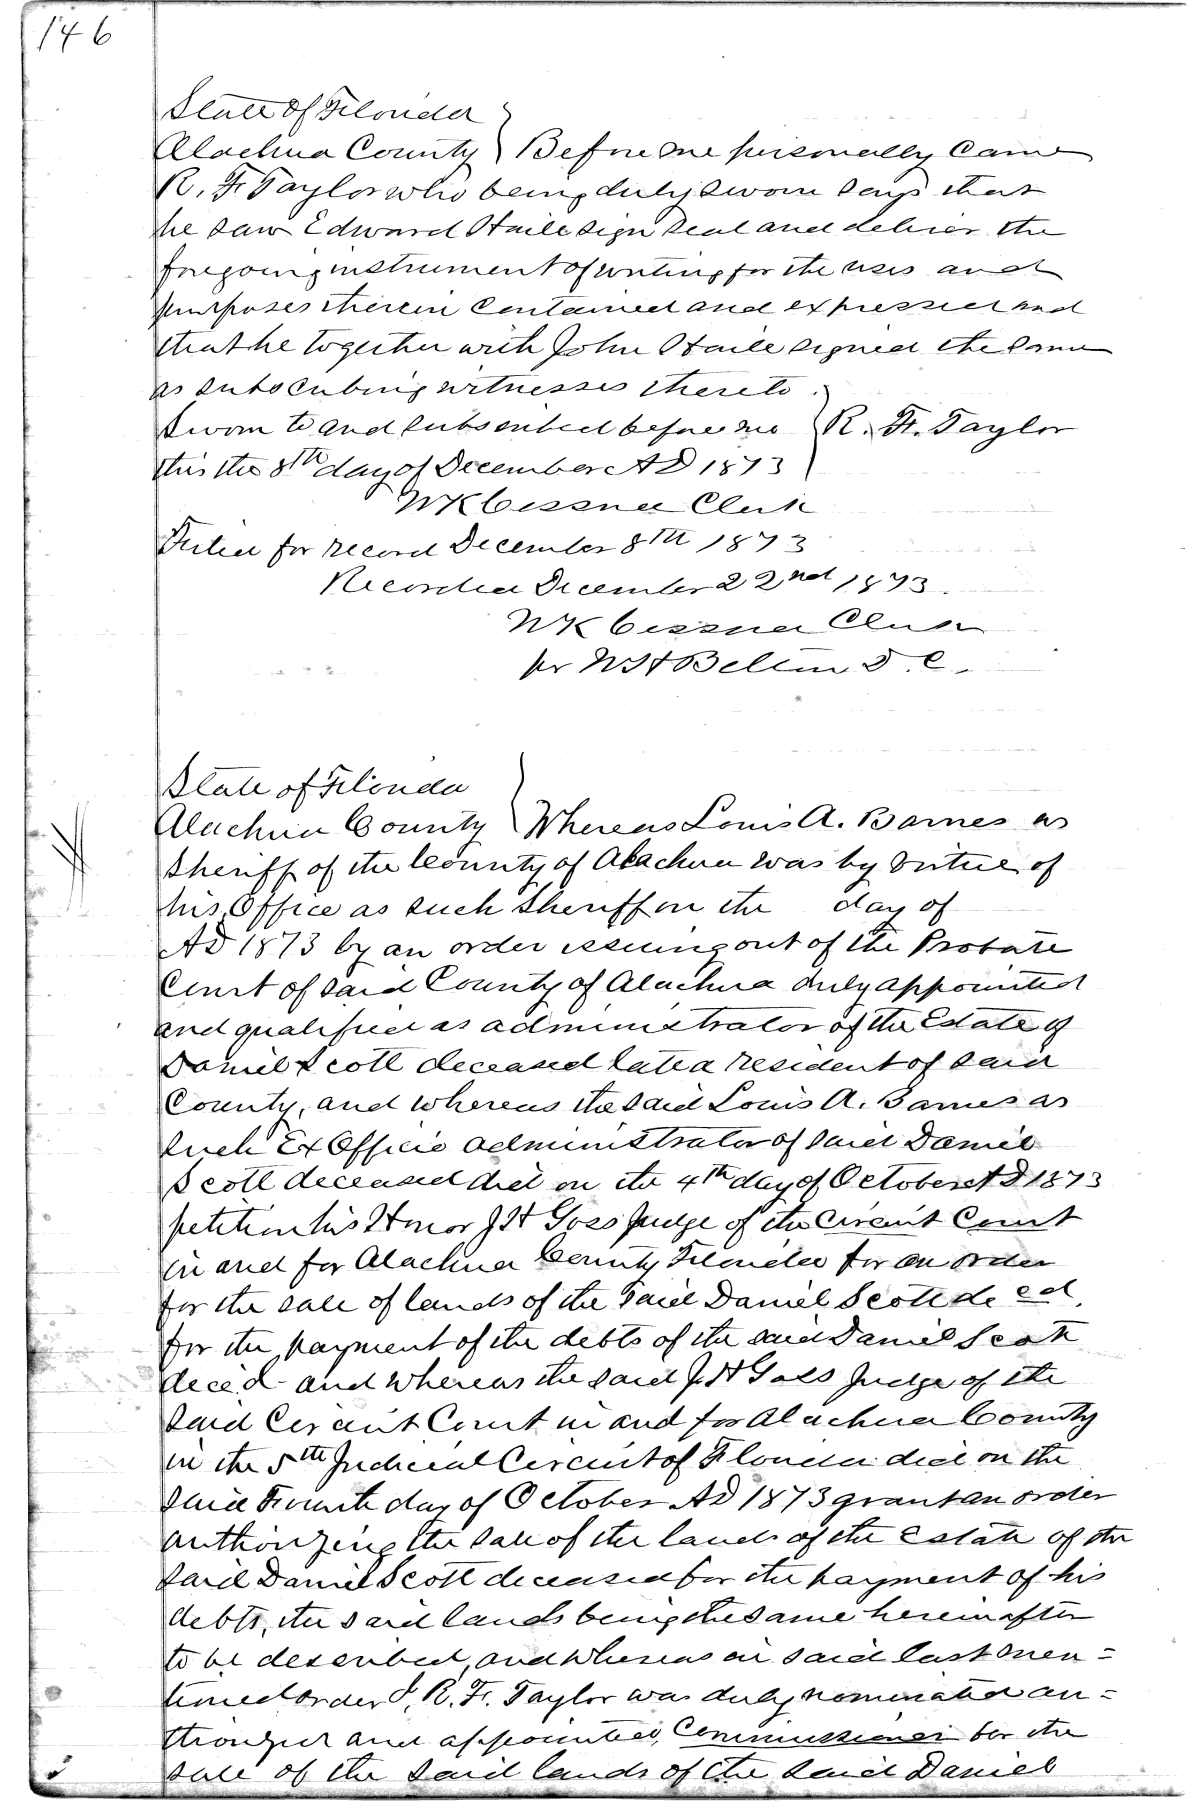 146
State of Florida
Alachua County } Before me personally came
R. F. Taylor who being duly sworn says that
he saw Edward Haile sign seal and deliver the
foregoing instrument of writing for the uses and
purposes therein contained and expressed and
that he together with John Haile signed the same
as subscribing witnesses thereto.
Sworn to and subscribed before me } R. F. Taylor
this the 8th day of December AD 1873
WK Cessna Clerk
Filed for record December 8th 1873
Recorded December 22nd 1873.
WK Cessna Clerk
per WH Belton D.C.
State of Florida
Alachua County } Whereas Louis A. Barnes as
Sheriff of the County of Alachua was by virtue of
his Office as such Sheriff on the day of
AD 1873 by an order issuing out of the Probate
Court of said County of Alachua duly appointed
and qualified as administrator of the Estate of
Daniel Scott deceased late a resident of said
County, and whereas the said Louis A. Barnes as
such Ex Officio administrator of said Daniel
Scott deceased did on the 4th day of October AD 1873
petition his Honor J H Goss Judge of the Circuit Court
in and for Alachua County Florida for an order
for the sale of lands of the said Daniel Scott dec ed.
for the payment of the debts of the said Daniel Scott
deced and whereas the said J H Goss Judge of the
said Circuit Court in and for Alachua County
in the 5th Judicial Circuit of Florida did on the
said Fourth day of October AD 1873 grant an order
authorizing the sale of the lands of the Estate of the
said Daniel Scott deceased for the payment of his
debts, the said lands being the same herein after
to be described, and whereas in said last men=
tioned order I, R. F. Taylor was duly nominated au=
thorized and appointed, Commissioner for the
sale of the said lands of the said Daniel